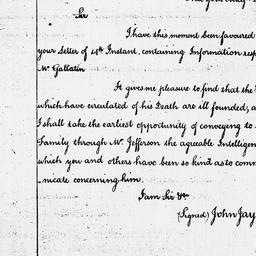 Sir
I have this moment been favoured
your Letter of 4th Instant, containing Information resp
Mr Gallatin
It gives me pleasure to find that the
which have circulated of his Death are ill founded, a
I shall take the earliest opportunity of conveying to
Family through Mr. Jefferson the agreeable Intelligen
which you and others have been so kind as to comm
-nicate concerning him.
I am Sir &c.
(Signed) John Jay